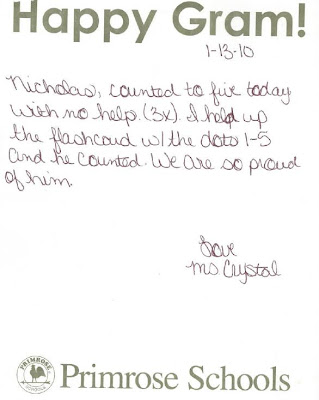 Happy Gram!
1-13-10
Nicholas, counted to five today
with no help. (3x). I held up
the flashcard w/ the dots 1-5
and he counted. We are so proud
of him.
Love
Ms Crystal
PRIMROSE
Primrose Schools